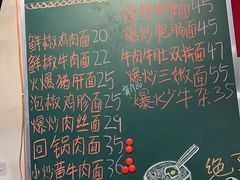 鲜椒鸡肉面20
鲜椒牛肉面22
火爆猪肝面25
泡椒鸡胗面25
爆炒肉丝面29
回锅肉面35
小炒黄牛肉面36
45
爆炒肥肠面45
牛肉牛肚双拼面47
爆炒三嫩面55
爆炒牛杂35